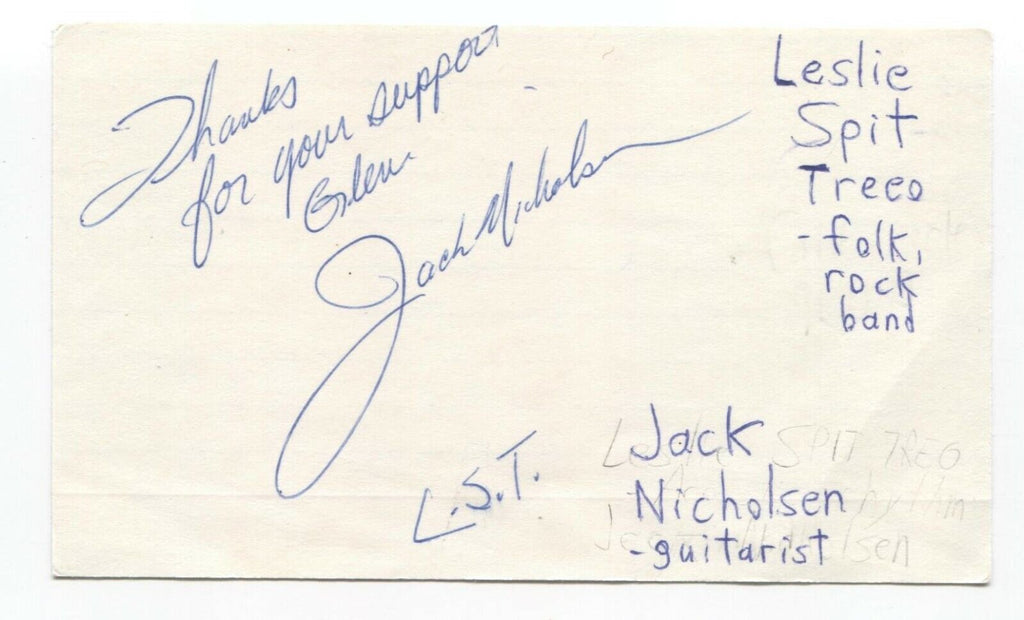 Thanks
for your support
Glen
Jack Nicholsen
L.S.T.
Leslie
Spit
Treeo
-folk,
rock
band
Jack
Nicholsen
-guitarist
Leslie SPIT TREO